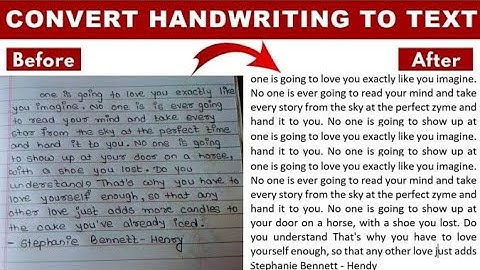 CONVERT HANDWRITING TO TEXT
Before
After
one is going to love you exactly like
you imagine. No one is is ever going
to read your mind and take every
star from the sky at the perfect time
and hand it to you. No one is going
to show up at your door on a horse,
with a shoe you lost. Do you
understand? That's why you have to
love yourself enough, so that any
other love just adds more candles to
the cake you've already iced.
- Stephanie Bennett-Henry
one is going to love you exactly like you imagine.
No one is ever going to read your mind and take
every story from the sky at the perfect zyme and
hand it to you. No one is going to show up at
one is going to love you exactly like you imagine.
hand it to you. No one is going to show up at
one is going to love you exactly like you imagine.
No one is ever going to read your mind and take
every story from the sky at the perfect zyme and
hand it to you. No one is going to show up at
your door on a horse, with a shoe you lost. Do
you understand That's why you have to love
yourself enough, so that any other love just adds
Stephanie Bennett - Hendy